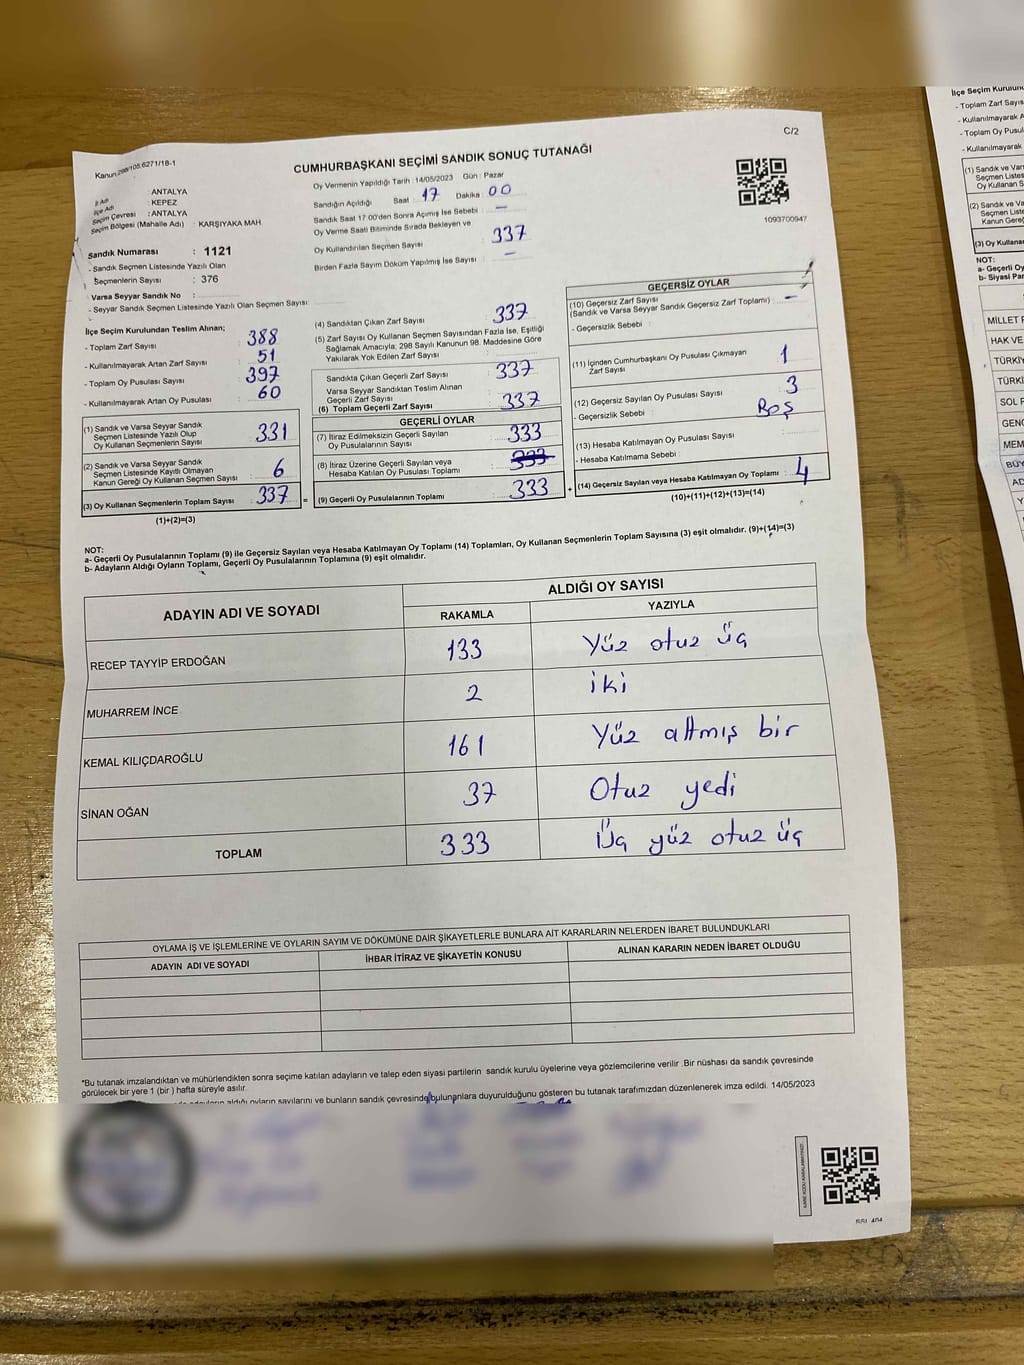 C/2
Kanun:298/105.6271/18-1
CUMHURBAŞKANI SEÇİMİ SANDIK SONUÇ TUTANAĞI
İl Adı : ANTALYA
İlçe Adı : KEPEZ
Seçim Çevresi : ANTALYA
Seçim Bölgesi (Mahalle Adı) : KARŞIYAKA MAH.
Sandık Numarası : 1121
- Sandık Seçmen Listesinde Yazılı Olan
Seçmenlerin Sayısı : 376
Varsa Seyyar Sandık No :
- Seyyar Sandık Seçmen Listesinde Yazılı Olan Seçmen Sayısı
Oy Vermenin Yapıldığı Tarih : 14/05/2023 Gün : Pazar
Sandığın Açıldığı Saat : 17 Dakika : 00
Sandık Saat 17:00'den Sonra Açımış İse Sebebi : -
Oy Verme Saati Bitiminde Sırada Bekleyen ve
Oy Kullandırılan Seçmen Sayısı : 337
Birden Fazla Sayım Döküm Yapılmış İse Sayısı : -
1093700947
İlçe Seçim Kurulundan Teslim Alınan;
- Toplam Zarf Sayısı : 388
- Kullanılmayarak Artan Zarf Sayısı : 51
- Toplam Oy Pusulası Sayısı : 397
- Kullanılmayarak Artan Oy Pusulası : 60
(1) Sandık ve Varsa Seyyar Sandık
Seçmen Listesinde Yazılı Olup
Oy Kullanan Seçmenlerin Sayısı : 331
(2) Sandık ve Varsa Seyyar Sandık
Seçmen Listesinde Kayıtlı Olmayan
Kanun Gereği Oy Kullanan Seçmen Sayısı : 6
(3) Oy Kullanan Seçmenlerin Toplam Sayısı : 337
(1)+(2)=(3)
=
(4) Sandıktan Çıkan Zarf Sayısı : 337
(5) Zarf Sayısı Oy Kullanan Seçmen Sayısından Fazla İse, Eşitliği
Sağlamak Amacıyla; 298 Sayılı Kanunun 98. Maddesine Göre
Yakılarak Yok Edilen Zarf Sayısı :
Sandıkta Çıkan Geçerli Zarf Sayısı : 337
Varsa Seyyar Sandıktan Teslim Alınan
Geçerli Zarf Sayısı :
(6) Toplam Geçerli Zarf Sayısı : 337
GEÇERLİ OYLAR
(7) İtiraz Edilmeksizin Geçerli Sayılan
Oy Pusulalarının Sayısı : 333
(8) İtiraz Üzerine Geçerli Sayılan veya
Hesaba Katılan Oy Pusulası Toplamı : 333
(9) Geçerli Oy Pusulalarının Toplamı : 333
+
GEÇERSİZ OYLAR
(10) Geçersiz Zarf Sayısı
(Sandık ve Varsa Seyyar Sandık Geçersiz Zarf Toplamı) : -
- Geçersizlik Sebebi :
(11) İçinden Cumhurbaşkanı Oy Pusulası Çıkmayan
Zarf Sayısı : 1
(12) Geçersiz Sayılan Oy Pusulası Sayısı : 3
- Geçersizlik Sebebi : Boş
(13) Hesaba Katılmayan Oy Pusulası Sayısı :
- Hesaba Katılmama Sebebi :
(14) Geçersiz Sayılan veya Hesaba Katılmayan Oy Toplamı : 4
(10)+(11)+(12)+(13)=(14)
NOT:
a- Geçerli Oy Pusulalarının Toplamı (9) ile Geçersiz Sayılan veya Hesaba Katılmayan Oy Toplamı (14) Toplamları, Oy Kullanan Seçmenlerin Toplam Sayısına (3) eşit olmalıdır. (9)+(14)=(3)
b- Adayların Aldığı Oyların Toplamı, Geçerli Oy Pusulalarının Toplamına (9) eşit olmalıdır.
ADAYIN ADI VE SOYADI
ALDIĞI OY SAYISI
RAKAMLA YAZIYLA
RECEP TAYYİP ERDOĞAN 133 Yüz otuz üç
MUHARREM İNCE 2 iki
KEMAL KILIÇDAROĞLU 161 Yüz altmış bir
SİNAN OĞAN 37 Otuz yedi
TOPLAM 333 Üç yüz otuz üç
OYLAMA İŞ VE İŞLEMLERİNE VE OYLARIN SAYIM VE DÖKÜMÜNE DAİR ŞİKAYETLERLE BUNLARA AİT KARARLARIN NELERDEN İBARET BULUNDUKLARI
ADAYIN ADI VE SOYADI İHBAR İTİRAZ VE ŞİKAYETİN KONUSU ALINAN KARARIN NEDEN İBARET OLDUĞU
*Bu tutanak imzalandıktan ve mühürlendikten sonra seçime katılan adayların ve talep eden siyasi partilerin sandık kurulu üyelerine veya gözlemcilerine verilir .Bir nüshası da sandık çevresinde
görülecek bir yere 1 (bir ) hafta süreyle asılır.
adayların aldığı oyların sayılarını ve bunların sandık çevresinde bulunanlara duyurulduğunu gösteren bu tutanak tarafımızdan düzenlenerek imza edildi. 14/05/2023
İlçe Seçim Kurulun
- Toplam Zarf Sayıs
- Kullanılmayarak A
- Toplam Oy Pusul
- Kullanılmayarak
(1) Sandık ve Var
Seçmen Listes
Oy Kullanan S
(2) Sandık ve Va
Seçmen Liste
Kanun Gere
(3) Oy Kullana
NOT:
a- Geçerli Oy
b- Siyasi Par
MİLLET
HAK VE
TÜRKİY
TÜRKİ
SOL P
GENÇ
MEM
BÜY
AD